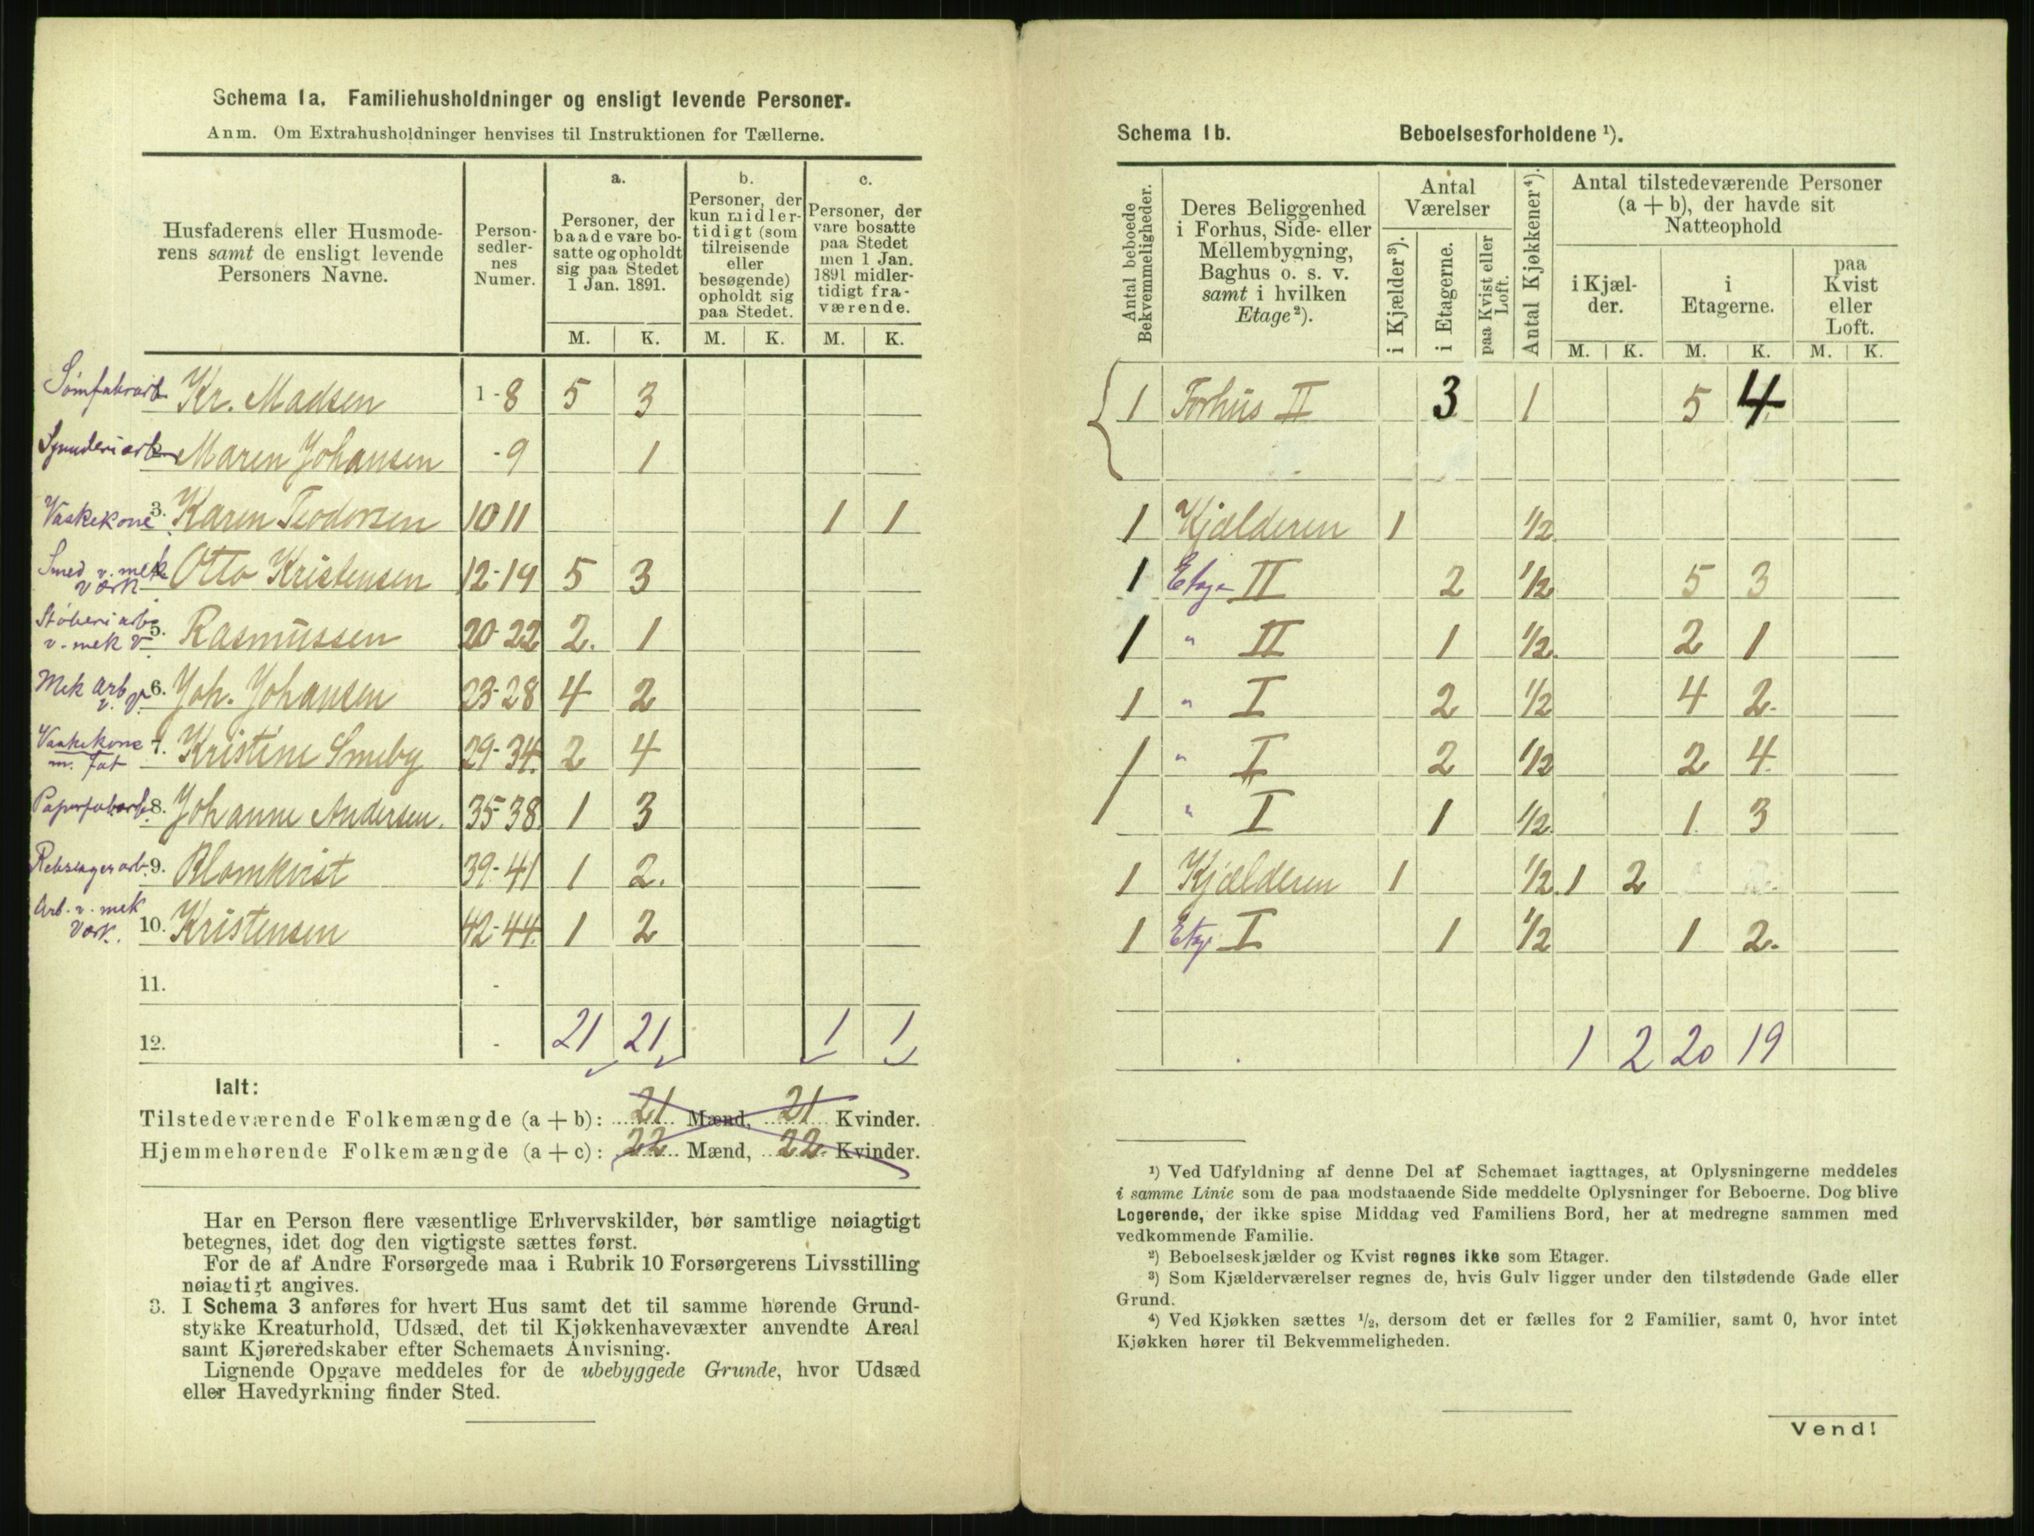 Schema 1a. Familiehusholdninger og ensligt levende Personer.
Anm. Om Extrahusholdninger henvises til Instruktionen for Tællerne.
Husfaderens eller Husmode-
rens samt de ensligt levende
Personers Navne.
Person-
sedler-
nes
Numer.
a.
Personer, der
baade vare bo-
satte og opholdt
sig paa Stedet
1 Jan. 1891.
b.
Personer, der
kun midler-
tidigt (som
tilreisende
eller
besøgende)
opholdt sig
paa Stedet.
c.
Personer, der
vare bosatte
paa Stedet
men 1 Jan.
1891 midler-
tidigt fra-
værende.
M. K. M. K. M. K.
Sømfabrarb Kr. Madsen 1-8 5 3
Spinderiarb Maren Johansen -9 1
Vaskekone 3. Karen Teodorsen 10 11 1 1
Smed v. mek Værk Otto Kristensen 12-19 5 3
Støberi arb v. mek V 5. Rasmussen 20-22 2. 1
Mek Arb v. V. 6. Joh. Johansen 23-28 4 2
Vaskekone m. fat 7. Kristine Smeby 29-34. 2 4
Papirfabarb. 8. Johanne Andersen. 35-38 1 3
Rebslagerarb. 9. Blomkvist 39-41 1 2.
Arb. v. mek Værk. 10. Kristensen 42-44. 1 2
11. -
12. - 21 21 1 1
Ialt:
Tilstedeværende Folkemængde (a + b): 21 Mænd, 21 Kvinder.
Hjemmehørende Folkemængde (a + c): 22 Mænd, 22 Kvinder.
Har en Person flere væsentlige Erhvervskilder, bør samtlige nøiagtigt
betegnes, idet dog den vigtigste sættes først.
For de af Andre Forsørgede maa i Rubrik 10 Forsørgerens Livsstilling
nøiagtigt angives.
3. I Schema 3 anføres for hvert Hus samt det til samme hørende Grund-
stykke Kreaturhold, Udsæd, det til Kjøkkenhavevæxter anvendte Areal
samt Kjøreredskaber efter Schemaets Anvisning.
Lignende Opgave meddeles for de ubebyggede Grunde, hvor Udsæd
eller Havedyrkning finder Sted.
Schema 1b. Beboelsesforholdene ¹).
Antal beboede
Bekvemmeligheder.
Deres Beliggenhed
i Forhus, Side- eller
Mellembygning,
Baghus o. s. v.
samt i hvilken
Etage²).
Antal
Værelser
i Kjælder³).
i Etagerne.
paa Kvist eller
Loft.
Antal Kjøkkener⁴).
Antal tilstedeværende Personer
(a + b), der havde sit
Natteophold
i Kjæl-
der.
i
Etagerne.
paa
Kvist
eller
Loft.
M. K. M. K. M. K.
1 Forhus II 3 1 5 4
1 Kjælderen 1 1/2
1 Etage II 2 1/2 5 3
1 " II 1 1/2. 2 1
1 " I 2 1/2 4 2.
1 " I 2 1/2 2 4.
" I 1 1/2 1 3
1 Kjælderen 1 1/2. 1 2
1 Etage I 1 1/2 1 2.
1 2 20 19
¹) Ved Udfyldning af denne Del af Schemaet iagttages, at Oplysningerne meddeles
i samme Linie som de paa modstaaende Side meddelte Oplysninger for Beboerne. Dog blive
Logerende, der ikke spise Middag ved Familiens Bord, her at medregne sammen med
vedkommende Familie.
²) Beboelseskjælder og Kvist regnes ikke som Etager.
³) Som Kjælderværelser regnes de, hvis Gulv ligger under den tilstødende Gade eller
Grund.
⁴) Ved Kjøkken sættes ¹/₂, dersom det er fælles for 2 Familier, samt 0, hvor intet
Kjøkken hører til Bekvemmeligheden.
Vend!